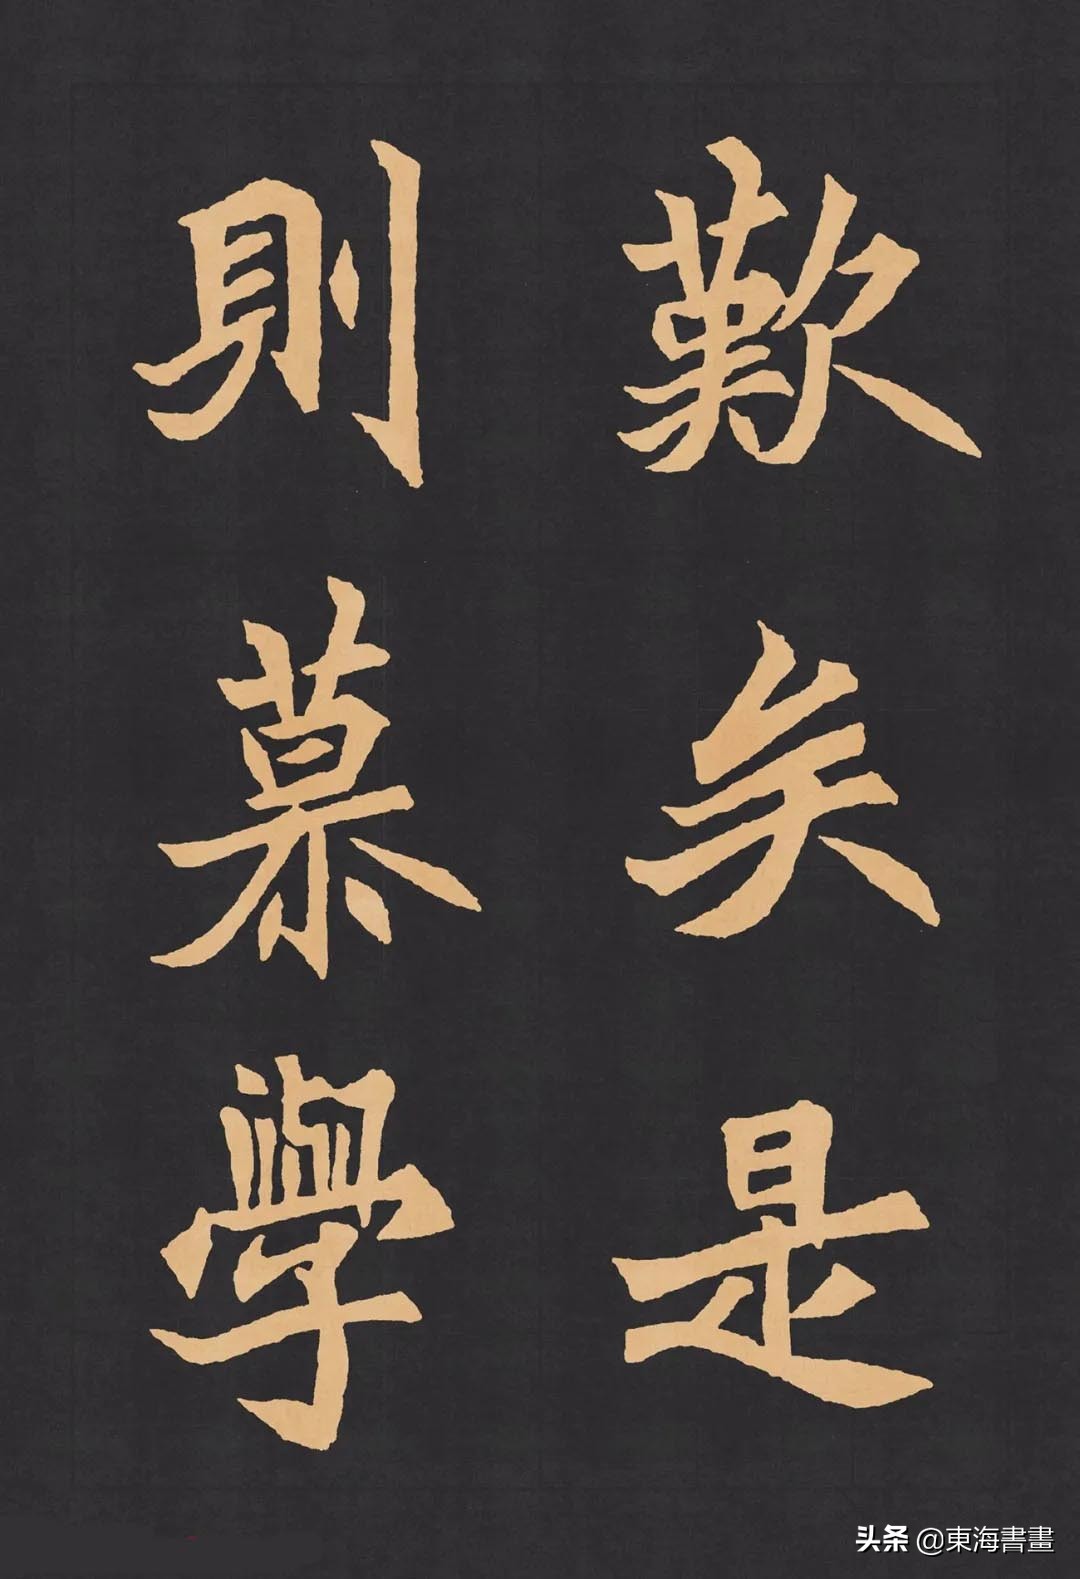 歎矣是
則慕學
头条 @東海書畫